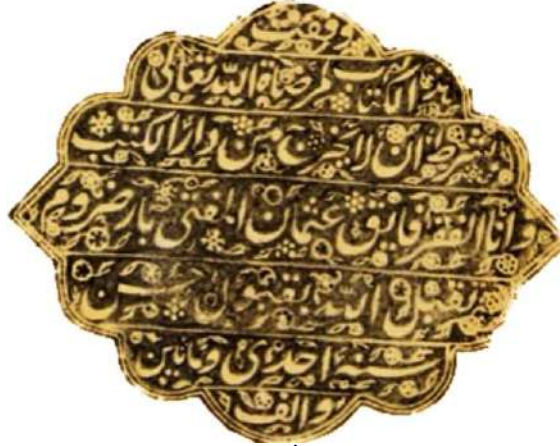 وقفت
هذا الكتاب لمرضاة الله تعالى
بشرط ان لا يخرج من دار الكتب
وانا الفقير فايق عثمان المفتي بارضروم
تقبل الله بقبول حسن
سنة احدى ومأتين
والف